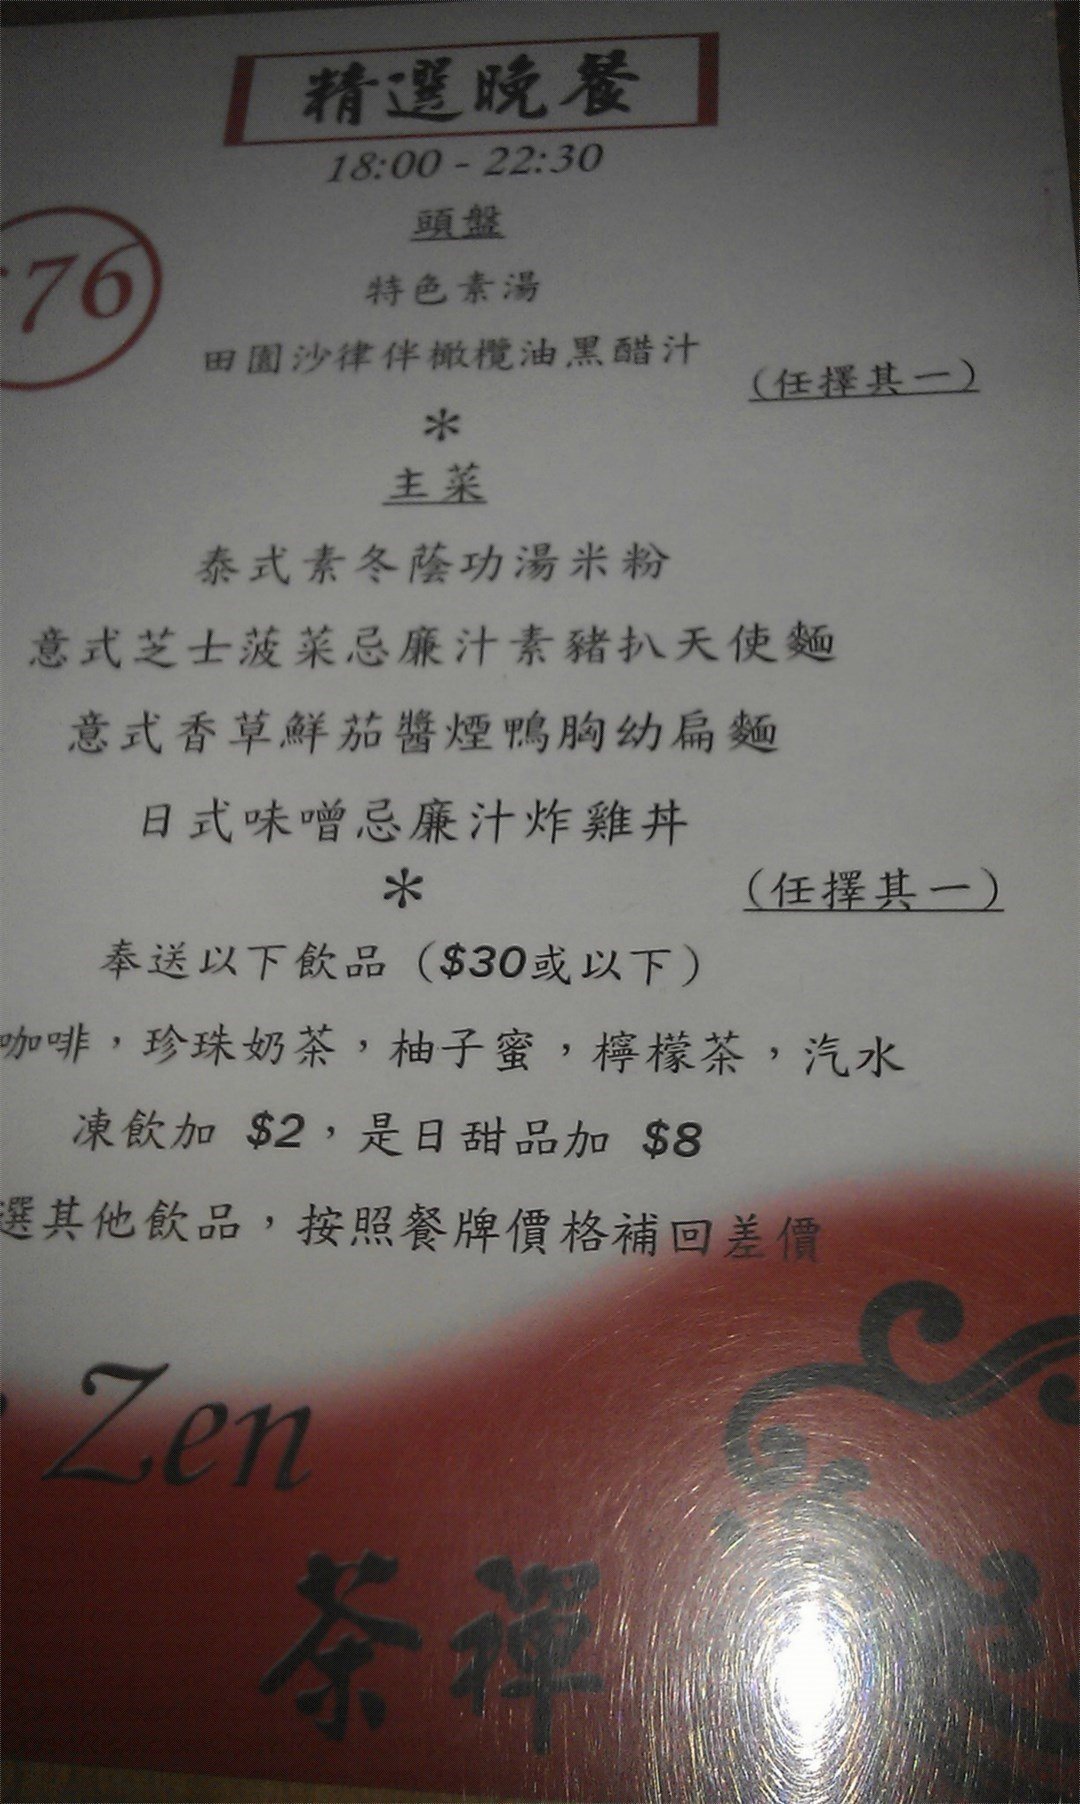 精選晚餐
18:00 - 22:30
頭盤
76
特色素湯
田園沙律伴橄欖油黑醋汁
(任擇其一)
*
主菜
泰式素冬蔭功湯米粉
意式芝士菠菜忌廉汁素豬扒天使麵
意式香草鮮茄醬煙鴨胸幼扁麵
日式味噌忌廉汁炸雞丼
*
(任擇其一)
奉送以下飲品 ($30或以下)
咖啡，珍珠奶茶，柚子蜜，檸檬茶，汽水
凍飲加 $2，是日甜品加 $8
選其他飲品，按照餐牌價格補回差價
Zen
茶禪